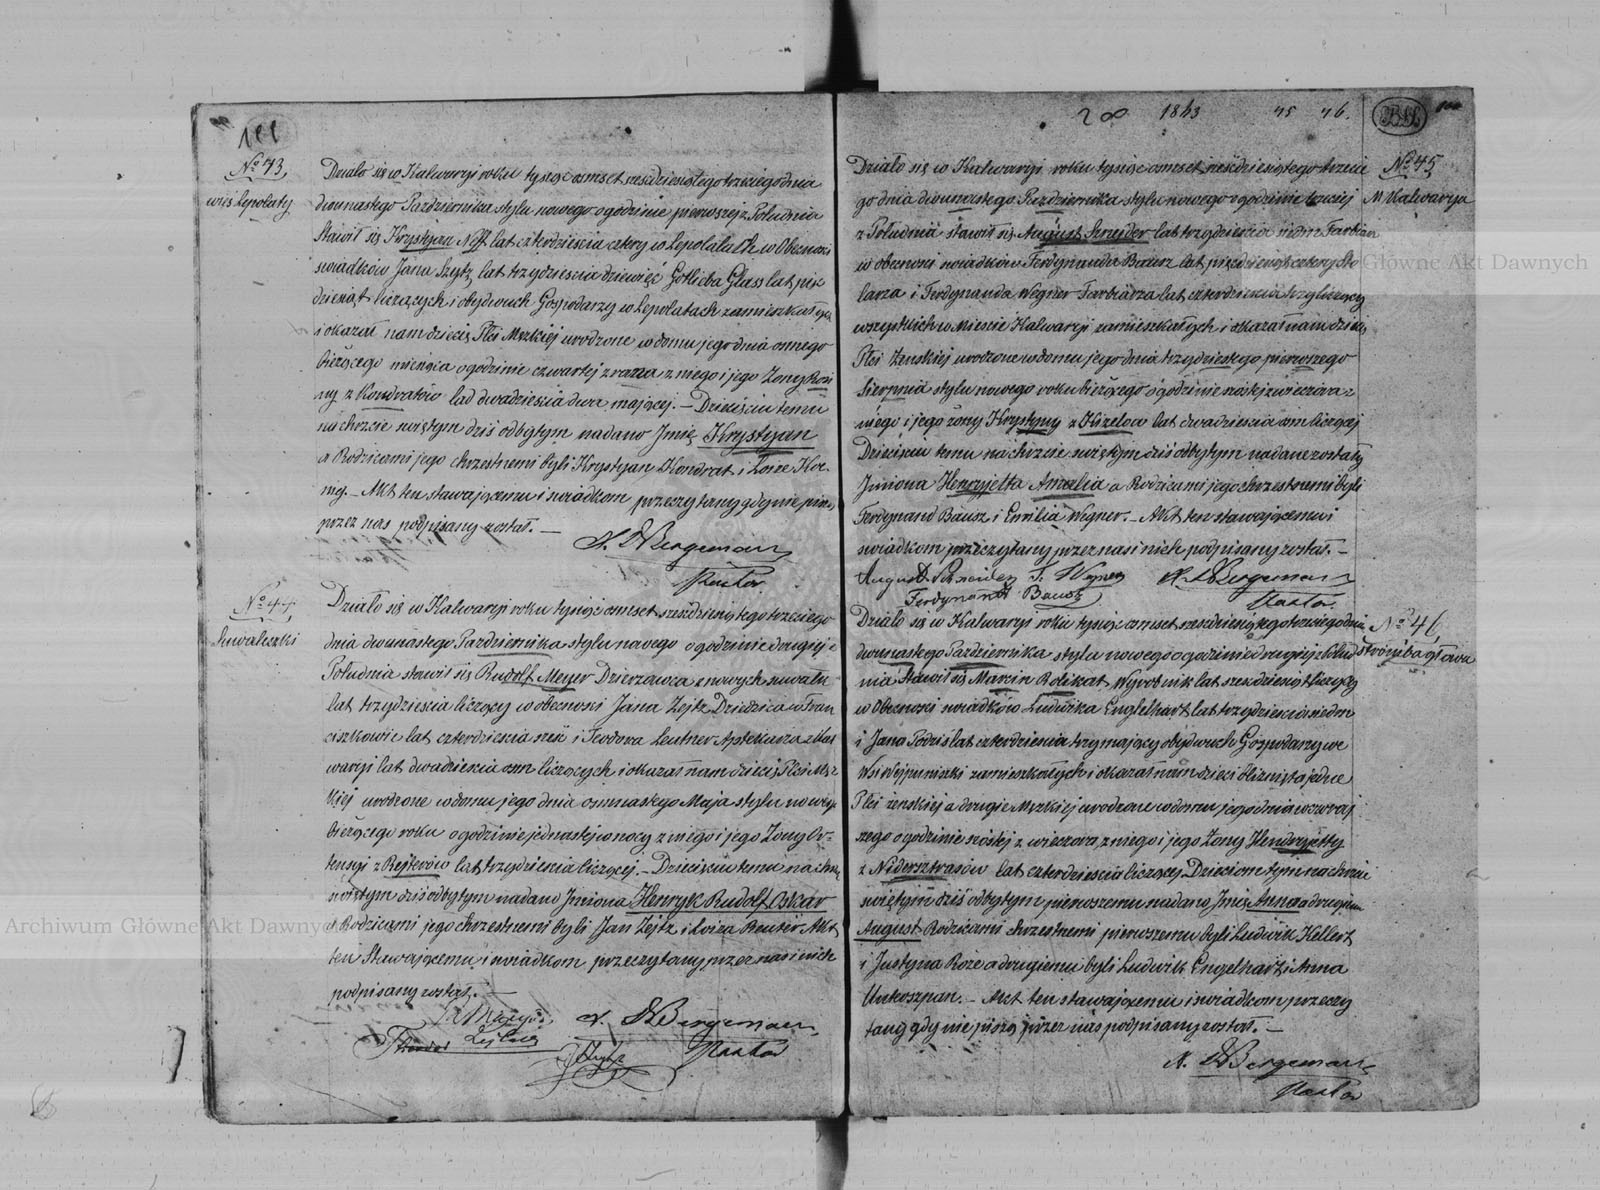 111
№ 43,
wieś Lepołaty
Działo się w Kalwaryi roku tysiąc osmset sześdziesiątego trzeciego dnia
dwunastego Pazdziernika stylu nowego o godzinie pierwszej z Południa
Stawił się Krystyan Neff lat czterdzieścia cztery w Lepolatach w Obecnosci
swiadków Jana Szytz lat trzydzieścia dziewięć Gotlieba Glass lat pięć
dziesiąt liczących i obydwuch Gospodarzy w Lepołatach zamieszkałych
i okazał nam dziecię Płci Męzkiej urodzone w domu jego dnia osmego
bieżącego miesiąca o godzinie czwartej z rana z niego i jego Żony Rozi
ny z Kondratów lad dwadziescia dwa mającej. — Dziecięciu temu
na chrzcie swiętym dziś odbytym nadano Jmię Krystyan
a Rodzicami jego chrzestnemi byli Krystyan Kondrat i Loize
Akt ten stawającemu i swiadkom przeczytany gdy nie piszą
przez nas podpisany został. —
A. W Bergemann
Pastor
№ 44
Suwaleszki
Działo się w Kalwaryi roku tysiąc osmset sześdziesiątego trzeciego
dnia dwunastego Pazdziernika stylu nowego o godzinie drugiej z
Południa stawił się Rudolf Meyer Dzierzawca z nowych Suwałk
lat trzydzieścia liczący w obecnosci Jana Zejtz Dziedzica w Fran
ciszkowie lat czterdzieścia sześć i Teodora Leutner Aptekarza z Kal
waryi lat dwadzieścia osm liczących i okazał nam dziecię Płci Męz
kiej urodzone w domu jego dnia osmnastego Maja stylu nowego
bieżącego roku o godzinie jednastej w nocy z niego i jego Żony Or=
tensyi z Rejterów lat trzydzieścia liczącej. — Dziecięciu temu na chrzcie
swiętym dziś odbytym nadano Jmiona Henryk Rudolf Oskar
a Rodzicami jego Chrzestnemi byli Jan Zejtz i Loiza Reuter Akt
ten Stawającemu i swiadkom przeczytany przez nas i nich
podpisany został. —
A. W Bergemann
Pastor
Theodor
28 1863 45 46.
№ 45
M Kalwarya
Działo się w Kalwaryi roku tysiąc osmset sześdziesiątego trzecie
go dnia dwunastego Pazdziernika stylu nowego o godzinie trzeciej
z Południa stawił się August Sznejder lat trzydzieścia siedm Farbiarz
w obecnosci swiadków Ferdynanda Bausz lat pięćdziesiąt cztery Sto
larza i Ferdynanda Wegner Farbiarza lat czterdzieścia trzy liczący
wszystkich w Miescie Kalwaryi zamieszkałych i okazał nam dziecię
Płci żenskiej urodzone w domu jego dnia trzydziestego pierwszego
Sierpnia stylu nowego roku bieżącego o godzinie szóstej z wieczora z
niego i jego żony Krystyny z Kizelow lat dwadzieścia osm liczącej
Dziecięciu temu na chrzcie swiętym dziś odbytym nadane zostały
Jmiona Henryjetta Amalia a Rodzicami jego chrzestnemi byli
Ferdynand Bausz i Emilia Wegner. — Akt ten stawającemu i
swiadkom przeczytany przez nas i nich podpisany został. —
August Schneider F. Wegner A. W Bergemann
Ferdynandt Bausz Pastor
№ 46
Strómbagłowa
Działo się w Kalwaryi roku tysiąc osmset sześdziesiątego trzeciego dnia
dwunastego Pazdziernika stylu nowego o godzinie drugiej z Połud
nia Stawił się Marcin Bolikat Wyrobnik lat szesdziesiąt liczący
w Obecnosci swiadków Ludwika Englelhart lat trzydzieścia siedm
i Jana Podzis lat czterdzieścia trzy mający obydwuch Gospodarzy we
Wsi Wejponiszki zamieszkałych i okazał nam dzieci bliznięta jedne
Płci żenskiej a drugie Męzkiej urodzone w domu jego dnia wczoraj
szego o godzinie szóstej z wieczora z niego i jego Żony Hendryjetty
z Nidersztrasów lat czterdziescia liczącej Dzieciom tym na chrzcie
swiętym dziś odbytym pierwszemu nadano Jmię Anna a drugiemu
August Rodzicami chrzestnemi pierwszemu byli Ludwik Kellert
i Justyna Roze a drugiemu byli Ludwik Engelhartz i Anna
Unteszpan. — Akt ten stawającemu i swiadkom przeczy
tany gdy nie piszą przez nas podpisany został. —
A. W Bergemann
Pastor
Archiwum Główne Akt Dawnych
Główne Akt Dawnych